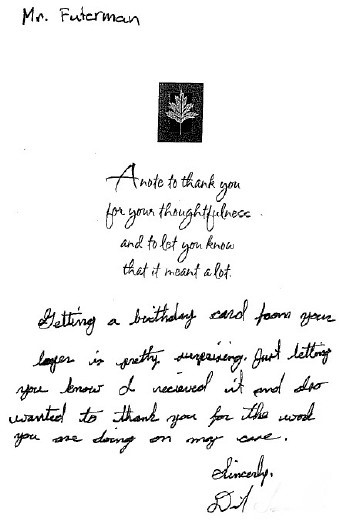 Mr. Futerman
A note to thank you
for your thoughtfulness
and to let you know
that it meant a lot.
Getting a birthday card from your
layer is pretty surprising. Just letting
you know I recieved it and also
wanted to thank you for the work
you are doing on my case.
Sincerely,